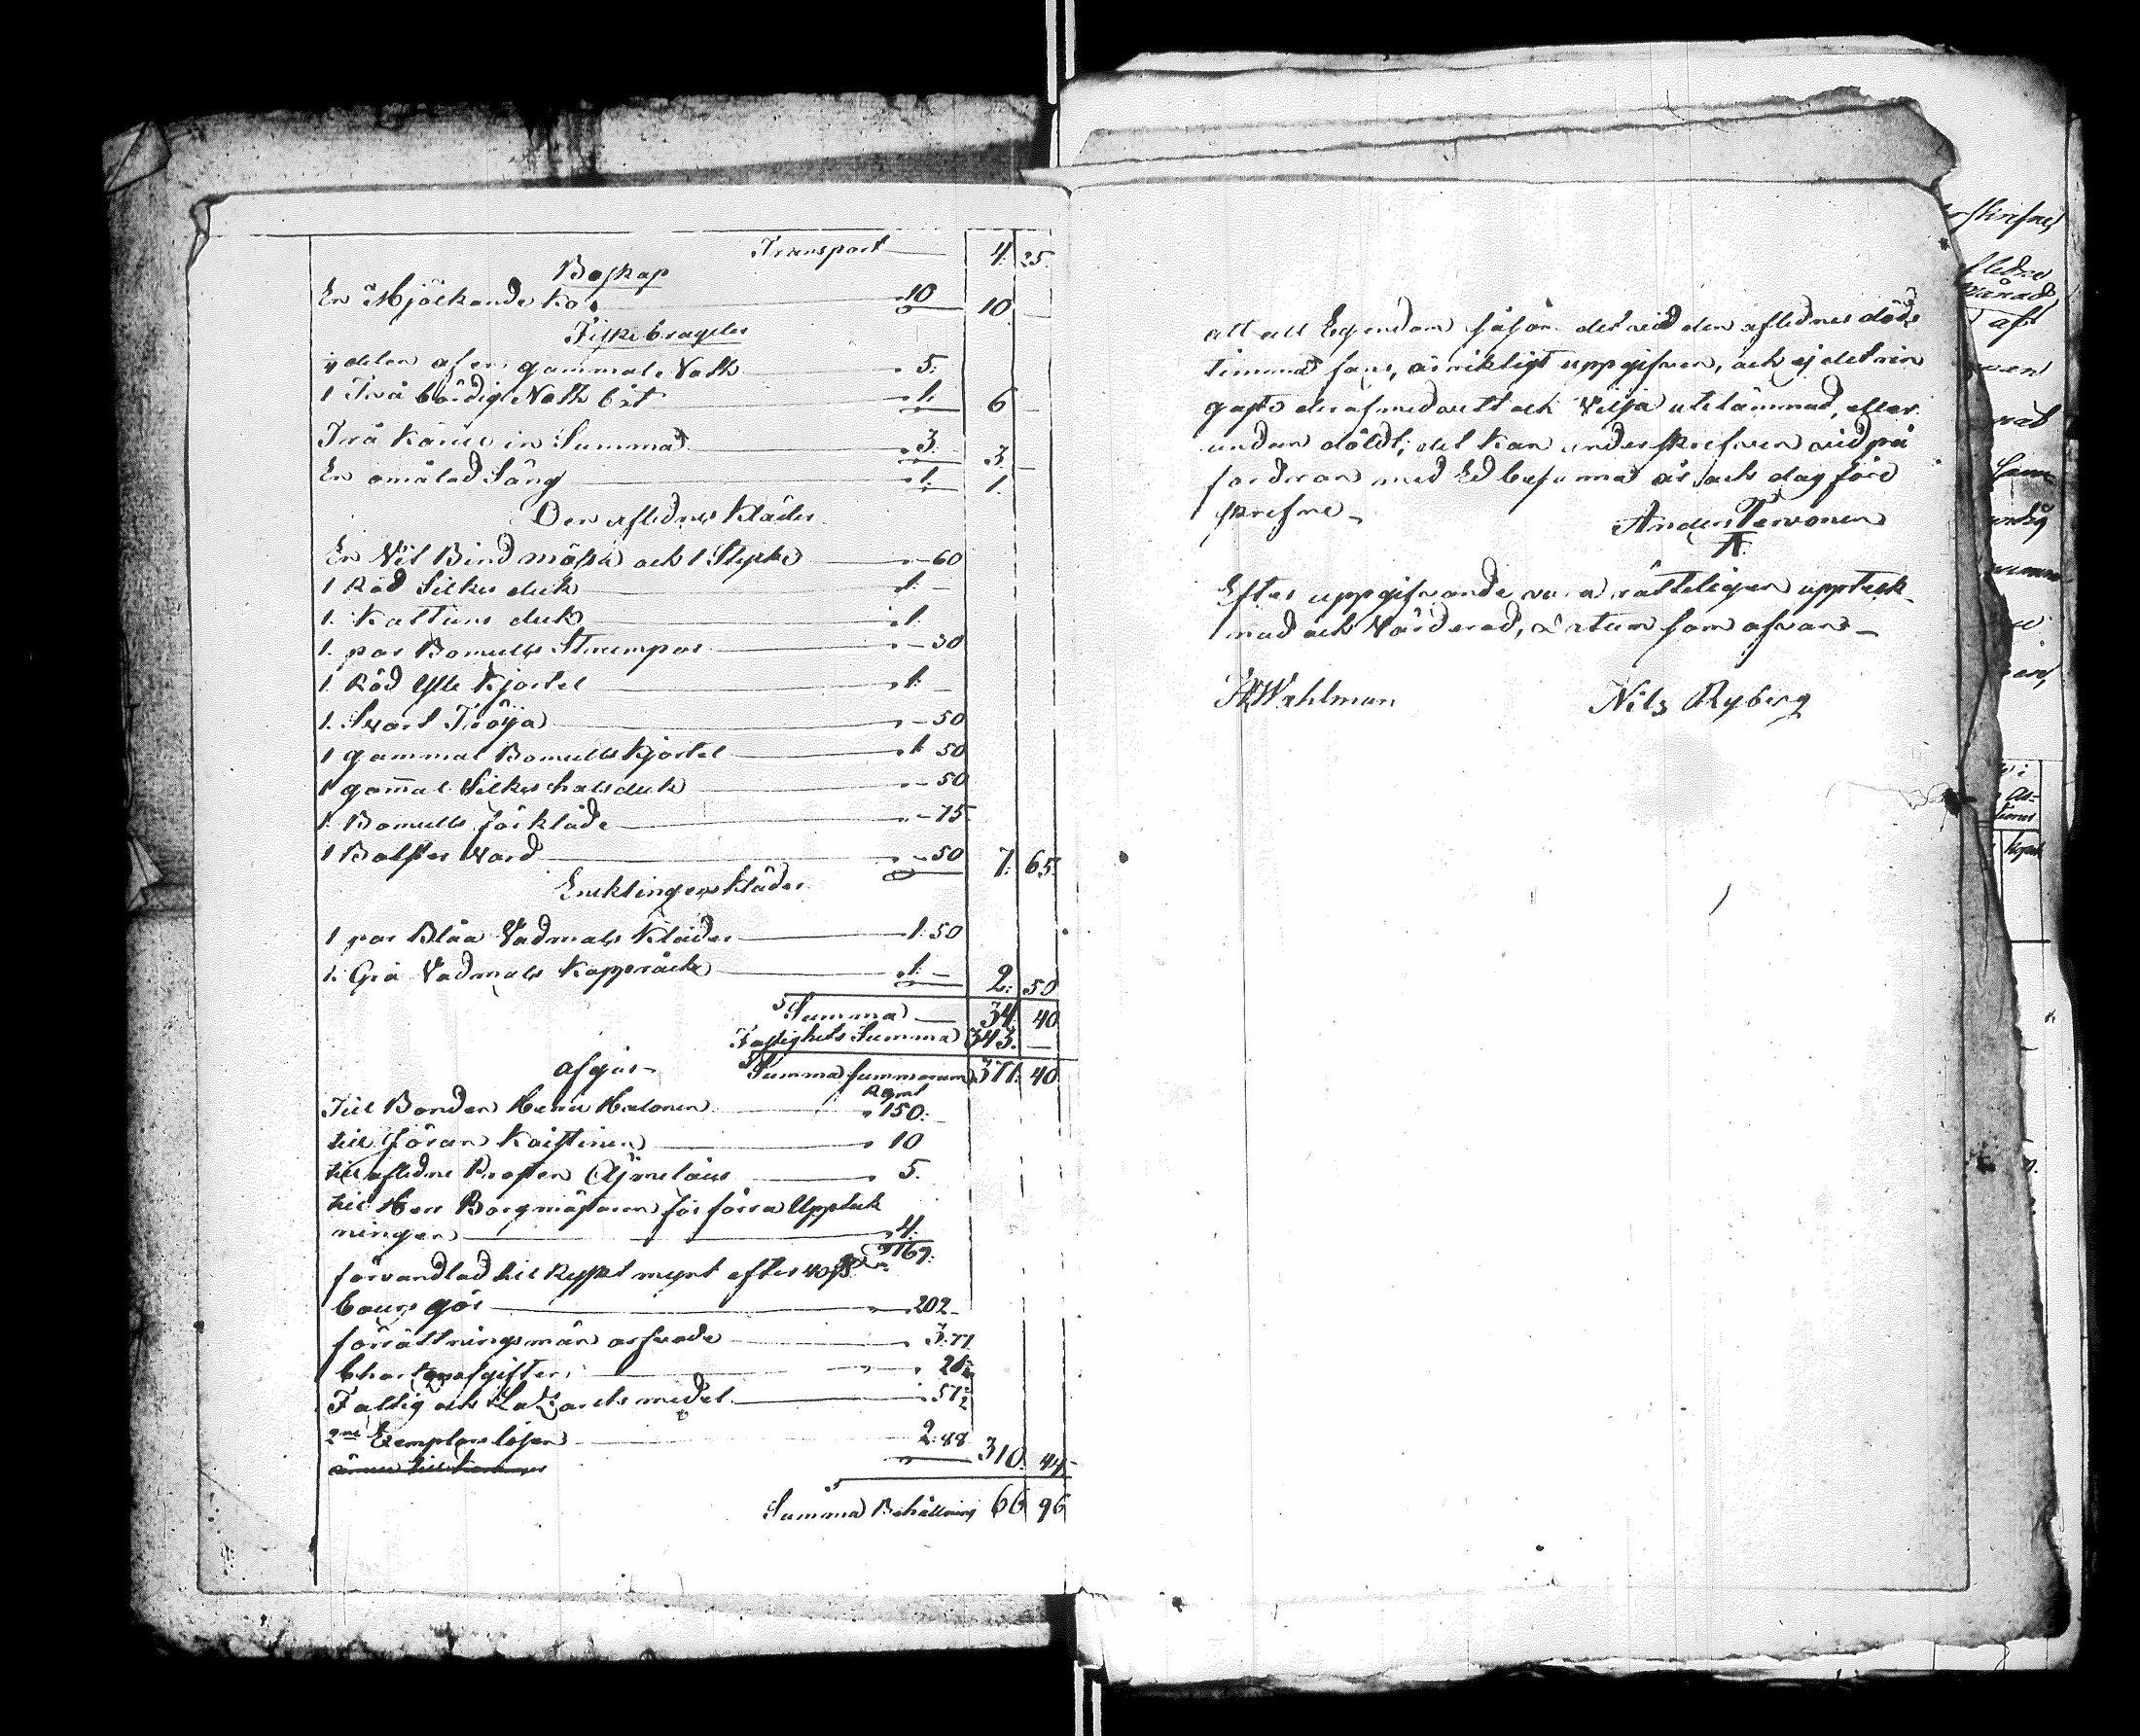 Transport 4. 25.
Boskap
En Mjölkande Ko 10 10. —
Fiske bragder
delen af en gammal Noth 5.
1 Två bördig Noth båt 1. 6 —
Två Kärill in Summa 3. 3. —
En omålad Säng 1. 1.
Den aflednes Kläder
En Vit Bind mössa och 1 Stycke — 60
1 Röd Silkes duk 1. —
1. Kattuns duk 1.
1. par Bomulls Strumpor — 30
1. Röd Ylle Kjortel 1. —
1. Svart Tröÿa — 50
1 gammal Bomulls Kjortel 1 50
1 gam̄al Silkes halsduk — 50
1. Bomulls förkläde — 75
1 Bolster Vard — 50 7. 65.
Enklingens Kläder
1 par Blåa Vadmals Kläder 1. 50
1. Grå Vadmals Kappråck 1. — 2. 50
Summa 34. 40
Fastighets Summa 343. —
afgår — Summa summarum 377. 40
Till Bonden Halonen 150. —
till Jöran Koistinen 10
till afledne Prosten Ajmelæus 5.
till Herr Borgmästaren för förra Upptek
ningen 4.
169.
förvandlad till Ryskt mynt efter
Cours gör 202 —
förrättningsmän arfvode 3. 77
Charta afgiften
Fattig och medel
2ne Exemplars lösen 2. 88 310. 44
Summa Behållning 66 96
att all Egendom såsom det vid den aflednes döds
timma fans, är riktigt uppgifven, och ej det rin
gaste deraf med vett och Vilja utelämnad, eller
undan döldt; det kan underskrefven vid på
fordran med Ed besanna år och dag före
skrefne —
Anders Tervonen
Efter uppgifvande vara rätteligen uppteck
nad och Värderad, datum som ofvan —
Wahlman Nils Ryberg
skrefne
afledne
af